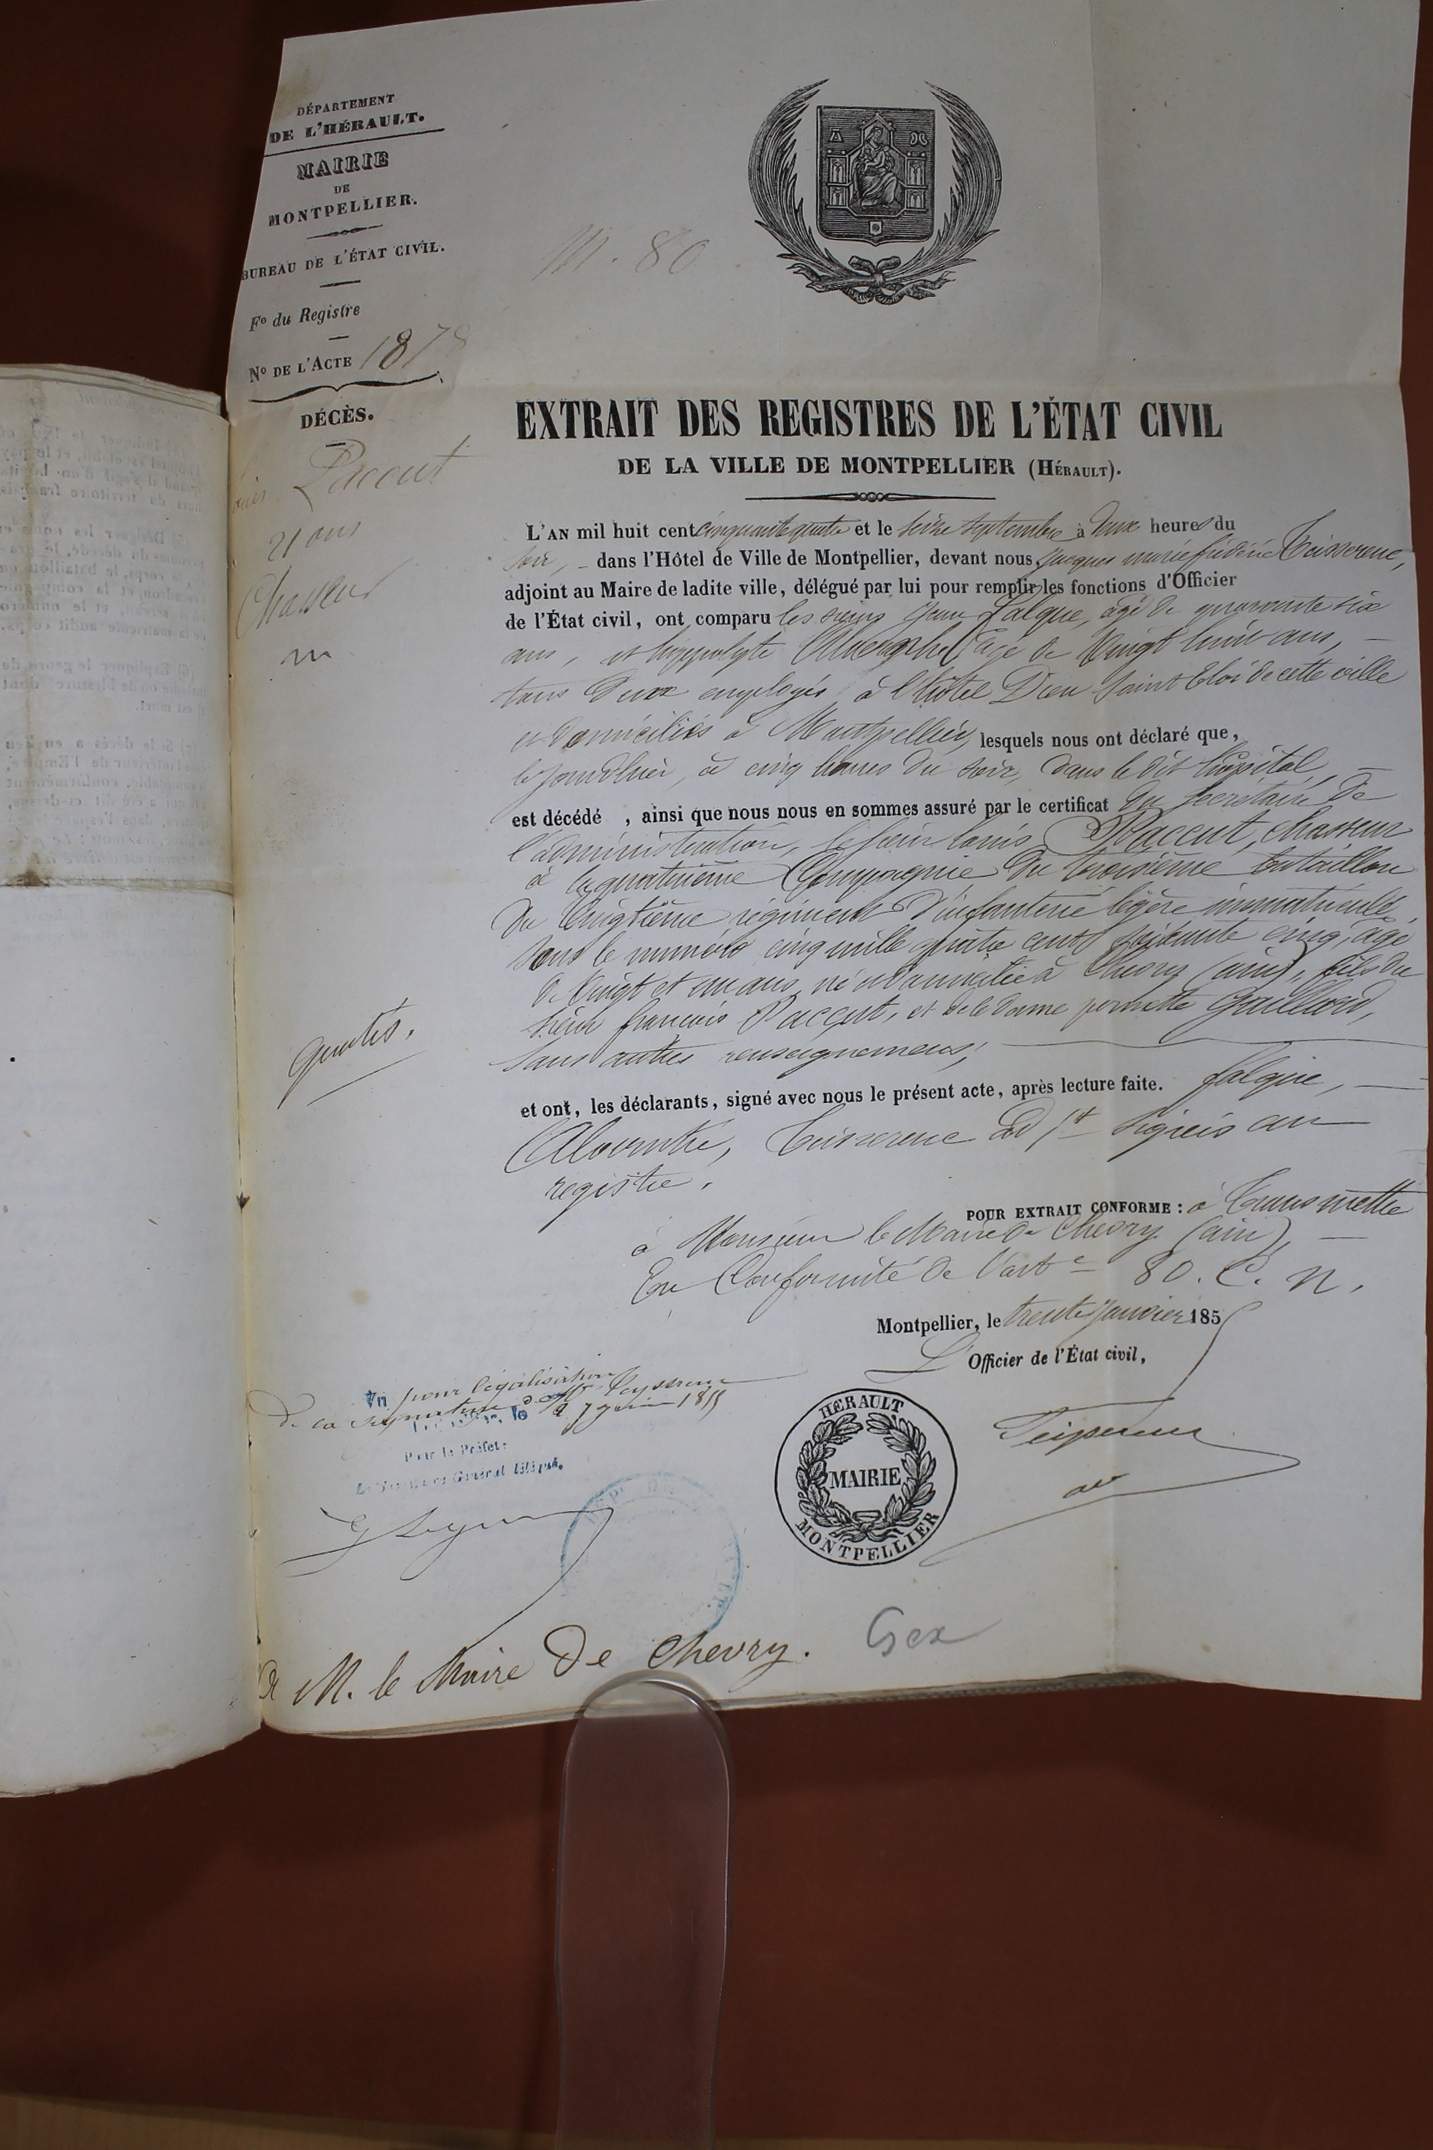 DÉPARTEMENT
DE L'HÉRAULT.
MAIRIE
DE
MONTPELLIER.
BUREAU DE L'ÉTAT CIVIL.
Fo du Registre
No DE L'ACTE 1878
DÉCÈS.
Paccut
21 ans
Chasseur
m
Gratis.
M. 80
EXTRAIT DES REGISTRES DE L'ÉTAT CIVIL
DE LA VILLE DE MONTPELLIER (HÉRAULT).
L'AN mil huit cent cinquante quatre et le seize septembre à deux heures du
soir, dans l'Hôtel de Ville de Montpellier, devant nous Jacques marie frédéric Teisserenc,
adjoint au Maire de ladite ville, délégué par lui pour remplir les fonctions d'Officier
de l'État civil, ont comparu les sieurs Jean Falque, agé de quarante six
ans, et hyppolyte agé de Vingt huit ans,
tous deux employés à l'hôtel Dieu Saint Eloi de cette ville
et domiciliés à Montpellier, lesquels nous ont déclaré que,
le jour d'hier, à cinq heures du soir, dans le dit hôpital,
est décédé , ainsi que nous nous en sommes assuré par le certificat du Secrétaire de
l'administration, le sieur louis Paccut, chasseur
à la quatrième Compagnie du troisième bataillon
du Vingtième régiment d'infanterie légère immatriculé
sous le numéro cinq mille quatre cent soixante cinq, agé
de Vingt et un ans, né et domicilié à Chevry (ain), fils du
sieur françois Paccut, et de la dame pernette Gaillard,
sans autres renseignemens,
et ont, les déclarants, signé avec nous le présent acte, après lecture faite. falque,
Teisserenc adjt signés au
registre.
POUR EXTRAIT CONFORME : à transmettre
à Monsieur le Maire de Chevry (ain)
En Conformité de l'art e 80. C. N.
Montpellier, le trente Janvier 1855
L'Officier de l'État civil,
Teisserenc
HÉRAULT
MAIRIE
MONTPELLIER
Vu pour légalisation
de la signature de Mr Teysserenc
1855
Pour le Préfet:
Le Secrétaire Général délégué,
A M. le Maire de Chevry.
Gex